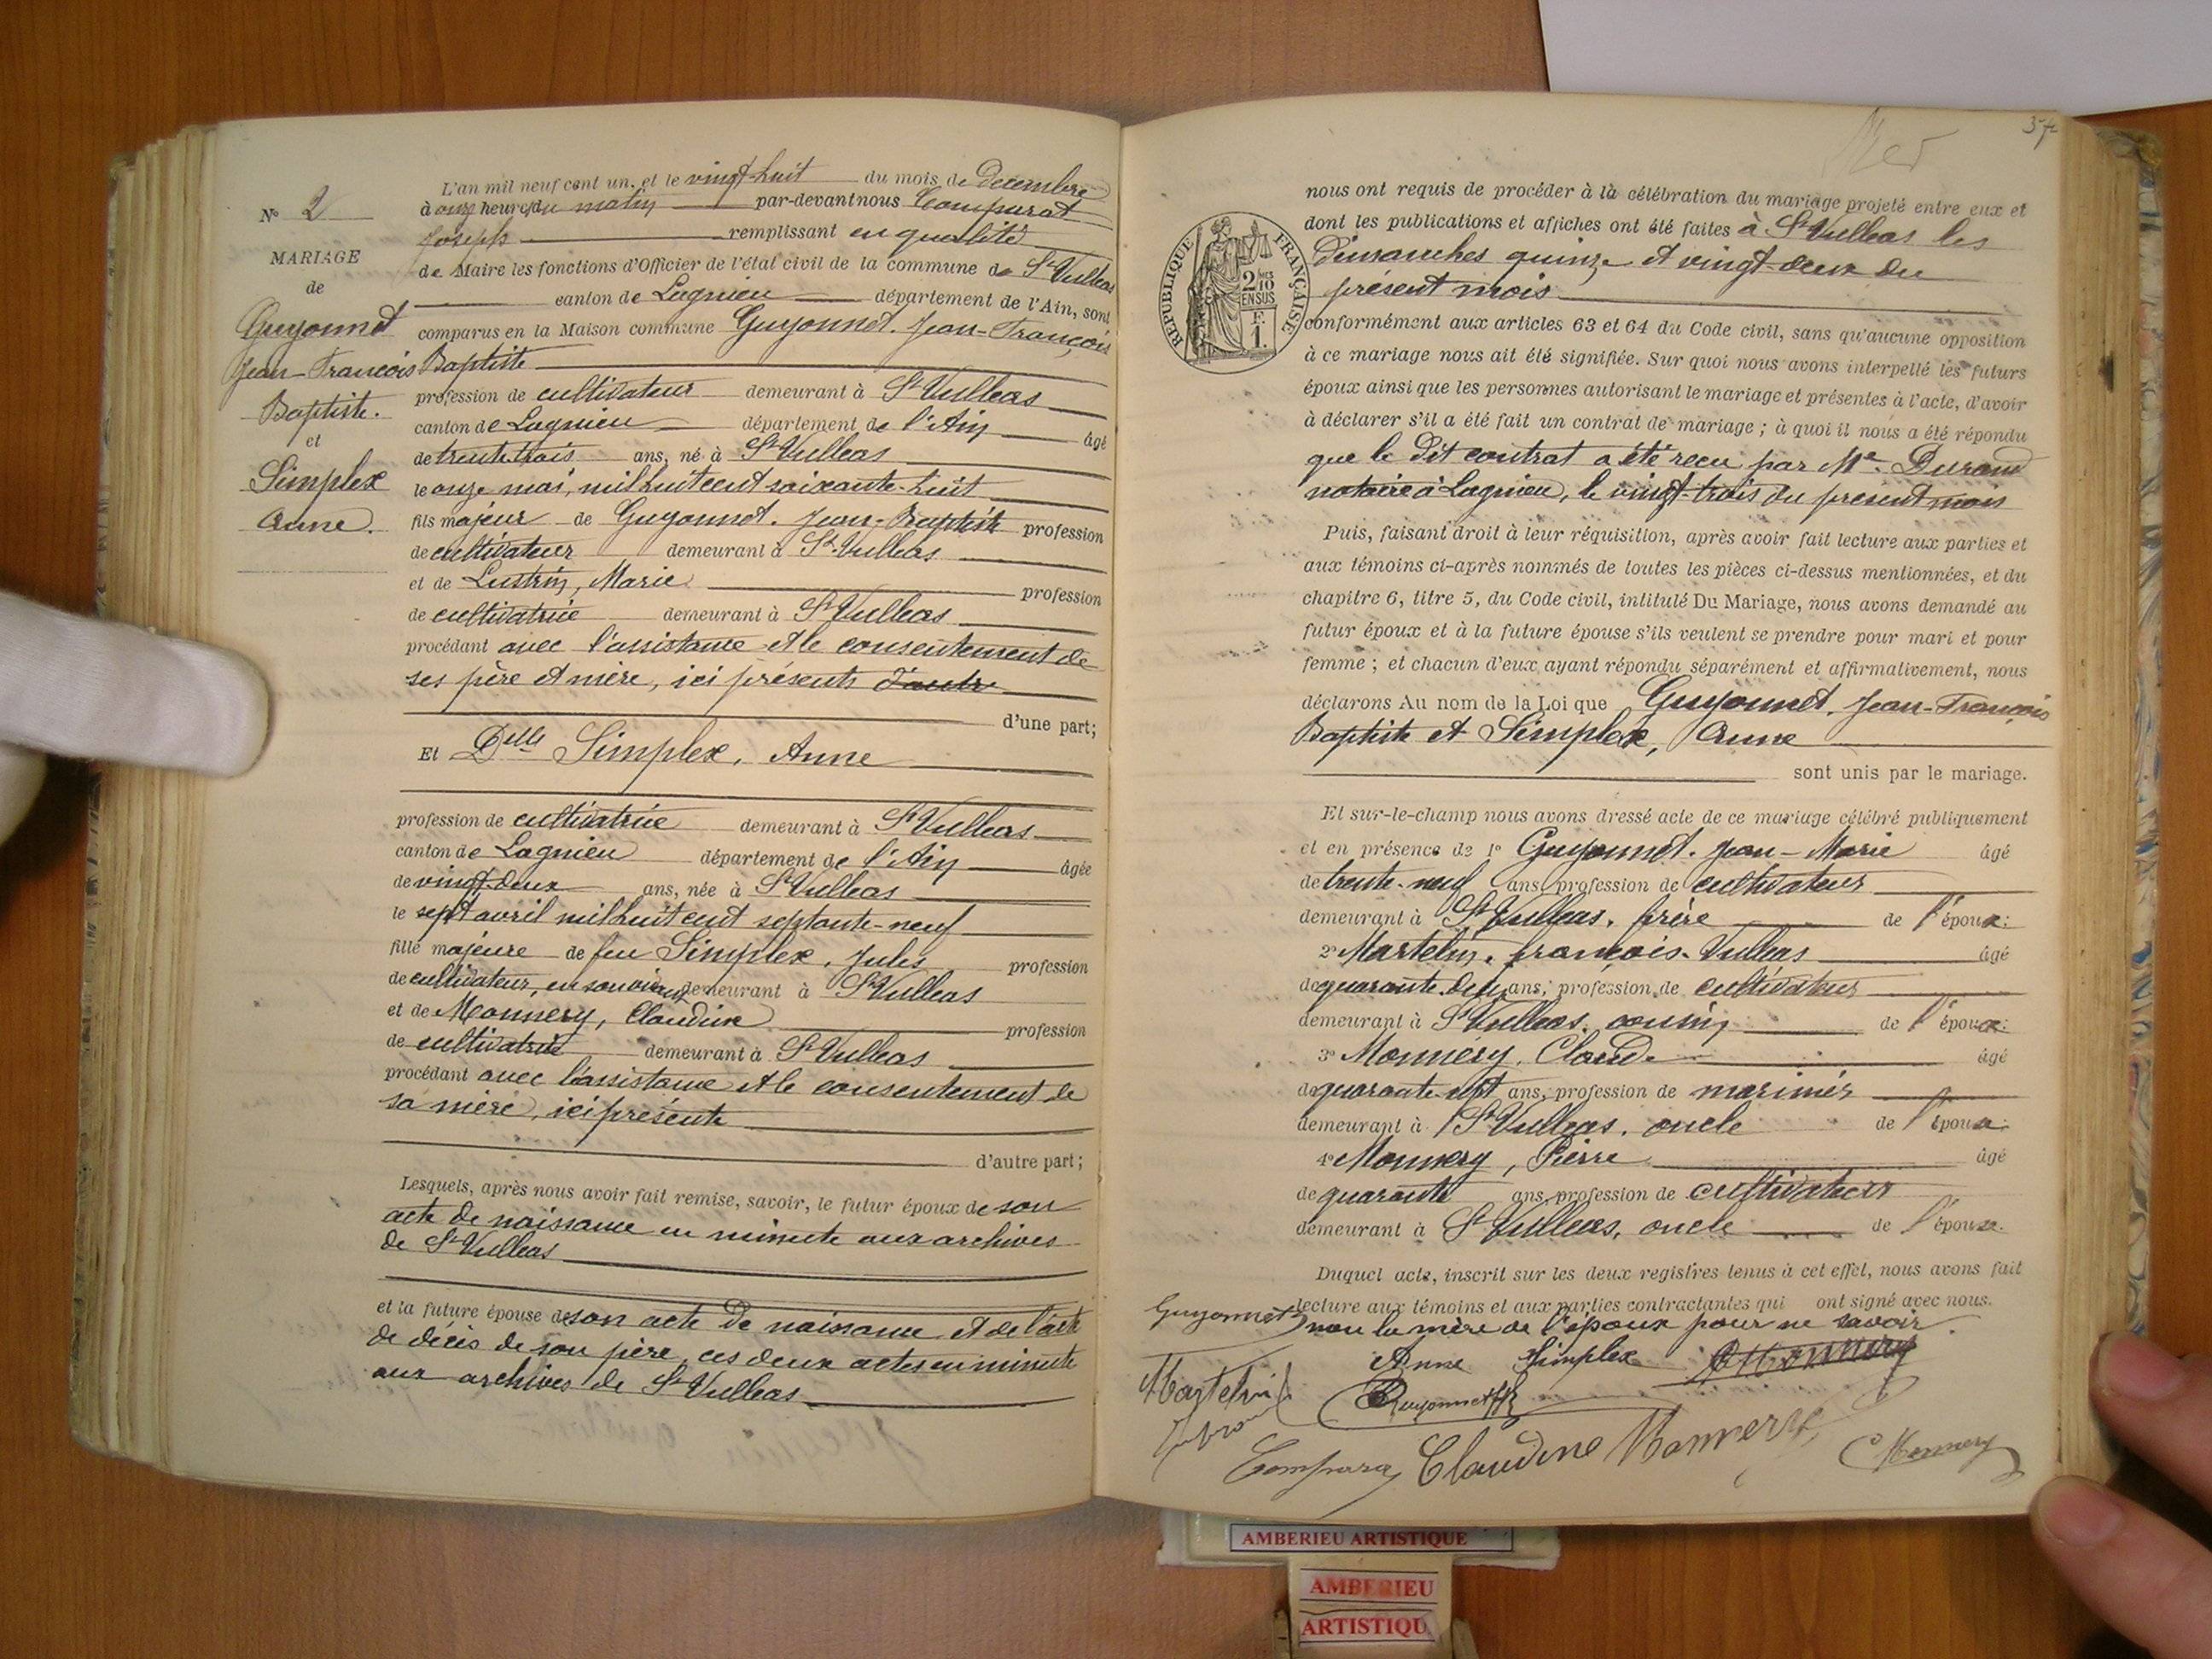 N° 2
MARIAGE
de
Guyonnet
Jean-François
Baptiste.
et
Simplex
Anne.
L'an mil neuf cent un, et le vingt-huit du mois de Décembre
à onze heures du matin par-devant nous Compurat
Joseph remplissant en qualité
de Maire les fonctions d'Officier de l'état civil de la commune de St Vulbas
canton de Lagnieu département de l'Ain, sont
comparus en la Maison commune Guyonnet. Jean-François
Baptiste
profession de cultivateur demeurant à St Vulbas
canton de Lagnieu département de l'Ain âgé
de trente trois ans, né à St Vulbas
le onze mai, mil huit cent soixante-huit
fils majeur de Guyonnet. Jean-Baptiste profession
de cultivateur demeurant à St Vulbas
et de Lustrin, Marie profession
de cultivatrice demeurant à St Vulbas
procédant avec l'assistance et le consentement de
ses père et mère, ici présents d'autre
d'une part;
Et Delle Simplex, Anne
profession de cultivatrice demeurant à St Vulbas
canton de Lagnieu département de l'Ain âgée
de vingt-deux ans, née à St Vulbas
le sept avril mil huit cent septante-neuf
fille majeure de feu Simplex, Jules profession
de cultivateur, en son vivant demeurant à St Vulbas
et de Monnery, Claudine profession
de cultivatrice demeurant à St Vulbas
procédant avec l'assistance et le consentement de
sa mère, ici présente
d'autre part;
Lesquels, après nous avoir fait remise, savoir, le futur époux de son
acte de naissance en minute aux archives
de St Vulbas
et la future épouse de son acte de naissance et de l'acte
de décès de son père, ces deux actes en minute
aux archives de St Vulbas
37
RÉPUBLIQUE FRANÇAISE
2/10 MES
EN SUS
F.
1.
nous ont requis de procéder à la célébration du mariage projeté entre eux et
dont les publications et affiches ont été faites à St Vulbas les
Dimanches quinze et vingt-deux du
présent mois
conformément aux articles 63 et 64 du Code civil, sans qu'aucune opposition
à ce mariage nous ait été signifiée. Sur quoi nous avons interpellé les futurs
époux ainsi que les personnes autorisant le mariage et présentes à l'acte, d'avoir
à déclarer s'il a été fait un contrat de mariage ; à quoi il nous a été répondu
que le dit contrat a été reçu par Me Durand
notaire à Lagnieu, le vingt-trois du présent mois
Puis, faisant droit à leur réquisition, après avoir fait lecture aux parties et
aux témoins ci-après nommés de toutes les pièces ci-dessus mentionnées, et du
chapitre 6, titre 5, du Code civil, intitulé Du Mariage, nous avons demandé au
futur époux et à la future épouse s'ils veulent se prendre pour mari et pour
femme ; et chacun d'eux ayant répondu séparément et affirmativement, nous
déclarons Au nom de la Loi que Guyonnet, Jean-François
Baptiste et Simplex, Anne
sont unis par le mariage.
Et sur-le-champ nous avons dressé acte de ce mariage célébré publiquement
et en présence de 1° Guyonnet. Jean-Marie âgé
de trente-neuf ans, profession de cultivateur
demeurant à St Vulbas, frère de l'époux;
2° Martelin, françois-Vulbas âgé
de quarante-deux ans, profession de cultivateur
demeurant à St Vulbas, cousin de l'époux;
3° Monnery, Claude âgé
de quarante-sept ans, profession de marinier
demeurant à St Vulbas, oncle de l'épouse;
4° Monnery, Pierre âgé
de quarante ans, profession de cultivateur
demeurant à St Vulbas, oncle de l'épouse.
Duquel acte, inscrit sur les deux registres tenus à cet effet, nous avons fait
lecture aux témoins et aux parties contractantes qui ont signé avec nous.
non la mère de l'époux pour ne savoir.
Guyonnet
Anne Simplex Monnery
Martelin
Guyonnet
Compurat Claudine Monnery C Monnery
AMBERIEU ARTISTIQUE
AMBERIEU
ARTISTIQU